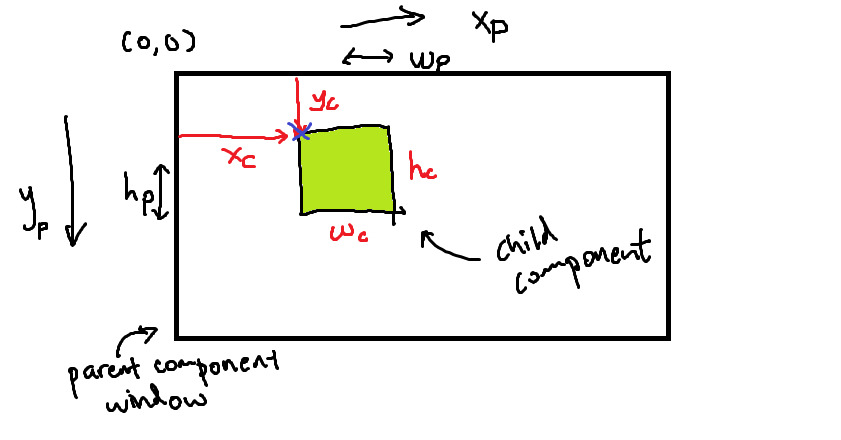 (0,0)
xp
wp
yc
xc
hc
hp
yp
wc
child
component
parent component
window